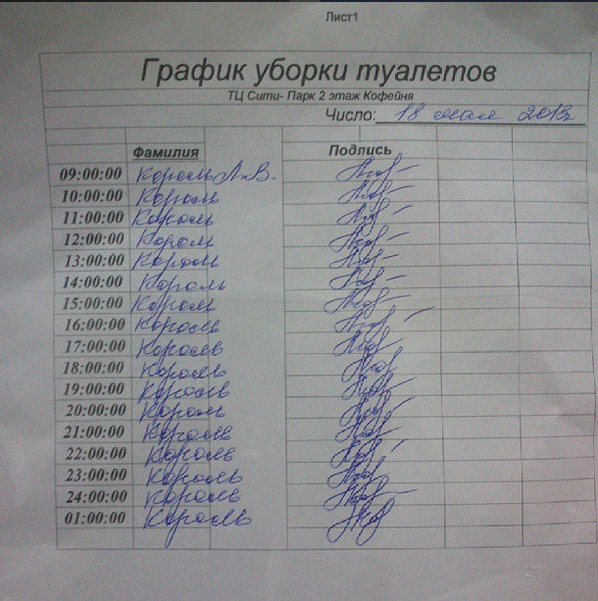 Лист1
График уборки туалетов
ТЦ Сити- Парк 2 этаж Кофейня
Число: 18 мая 2013г
Фамилия Подпись
09:00:00 Король Л.В.
10:00:00 Король
11:00:00 Король
12:00:00 Король
13:00:00 Король
14:00:00 Король
15:00:00 Король
16:00:00 Король
17:00:00 Король
18:00:00 Король
19:00:00 Король
20:00:00 Король
21:00:00 Король
22:00:00 Король
23:00:00 Король
24:00:00 Король
01:00:00 Король